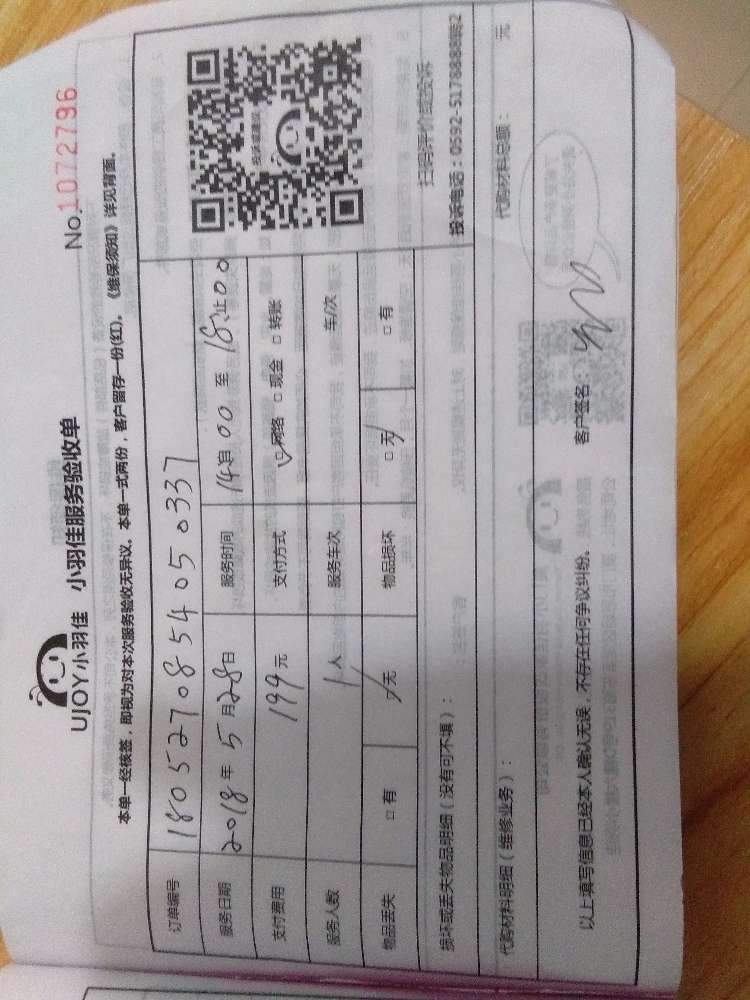 UJOY小羽佳 小羽佳服务验收单
No.1072796
本单一经核签，即视为对本次服务验收无异议。本单一式两份，客户留存一份(红)。《维保须知》详见背面。
订单编号 180527085405 0337
服务日期 2018年5月28日 服务时间 14:00 至 18:00止
支付费用 199元 支付方式 ☑网络 □现金 □转账
服务人数 1人 服务车次 车/次
物品丢失 □有 ☑无 物品损坏 □无 □有
扫码评价或投诉
投诉电话：0592-5178888转2
损坏或丢失物品明细（没有可不填）：
代购材料明细（维修业务）： 代购材料总额： 元
以上填写信息已经本人确认无误，不存在任何争议纠纷。 客户签名：